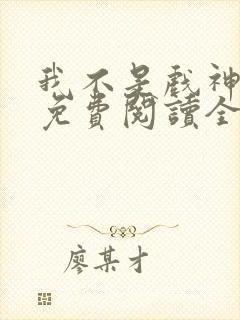 我不是戲神
免費閱讀全
廖某才